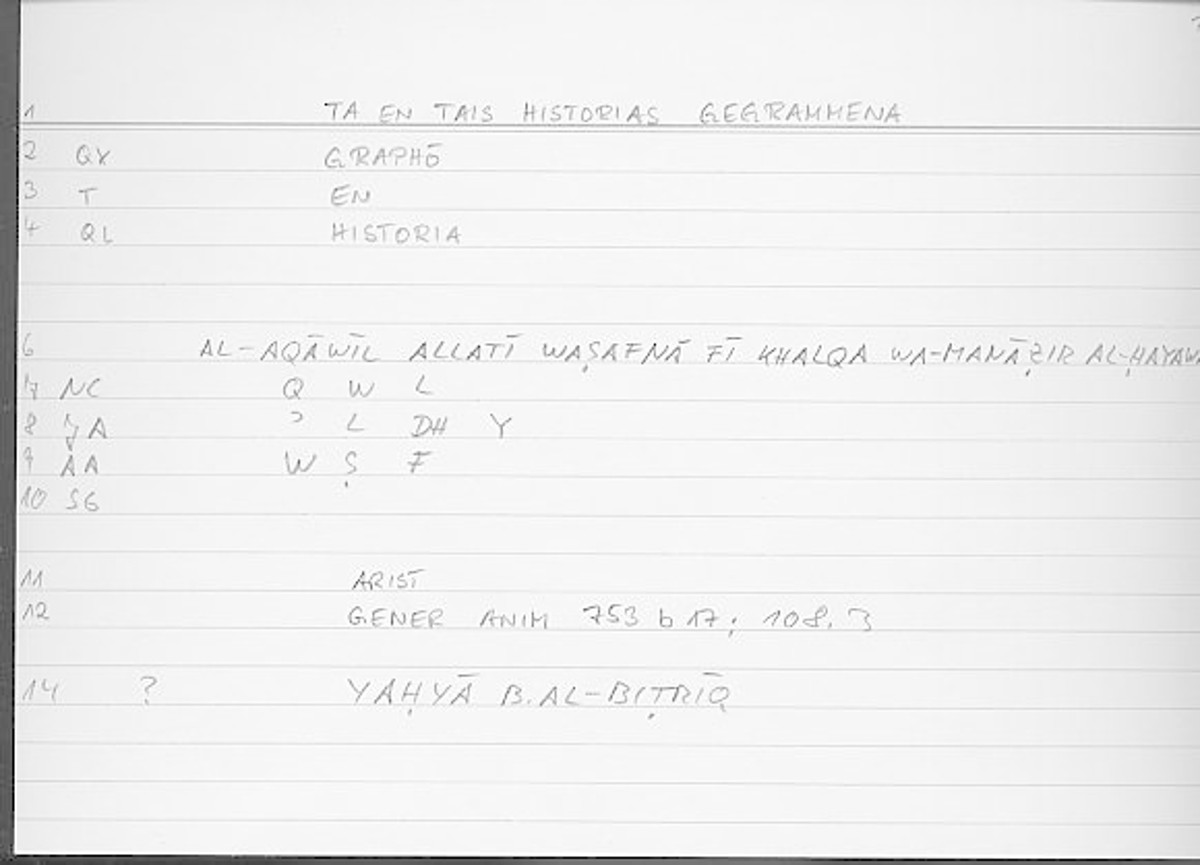 1 TA EN TAIS HISTORIAS GEGRAMMENA
2 QX GRAPHŌ
3 T EN
4 QL HISTORIA
6 AL-AQĀWĪL ALLATĪ WAṢAFNĀ FĪ KHALQA WA-MANĀẒIR
17 NC Q W L
8 A ʾ L DH Y
9 AA W Ṣ F
10 SG
11 ARIST
12 GENER ANIM 753 b 17; 108, 3
14 ? YAḤYĀ B. AL-BIṬRĪQ